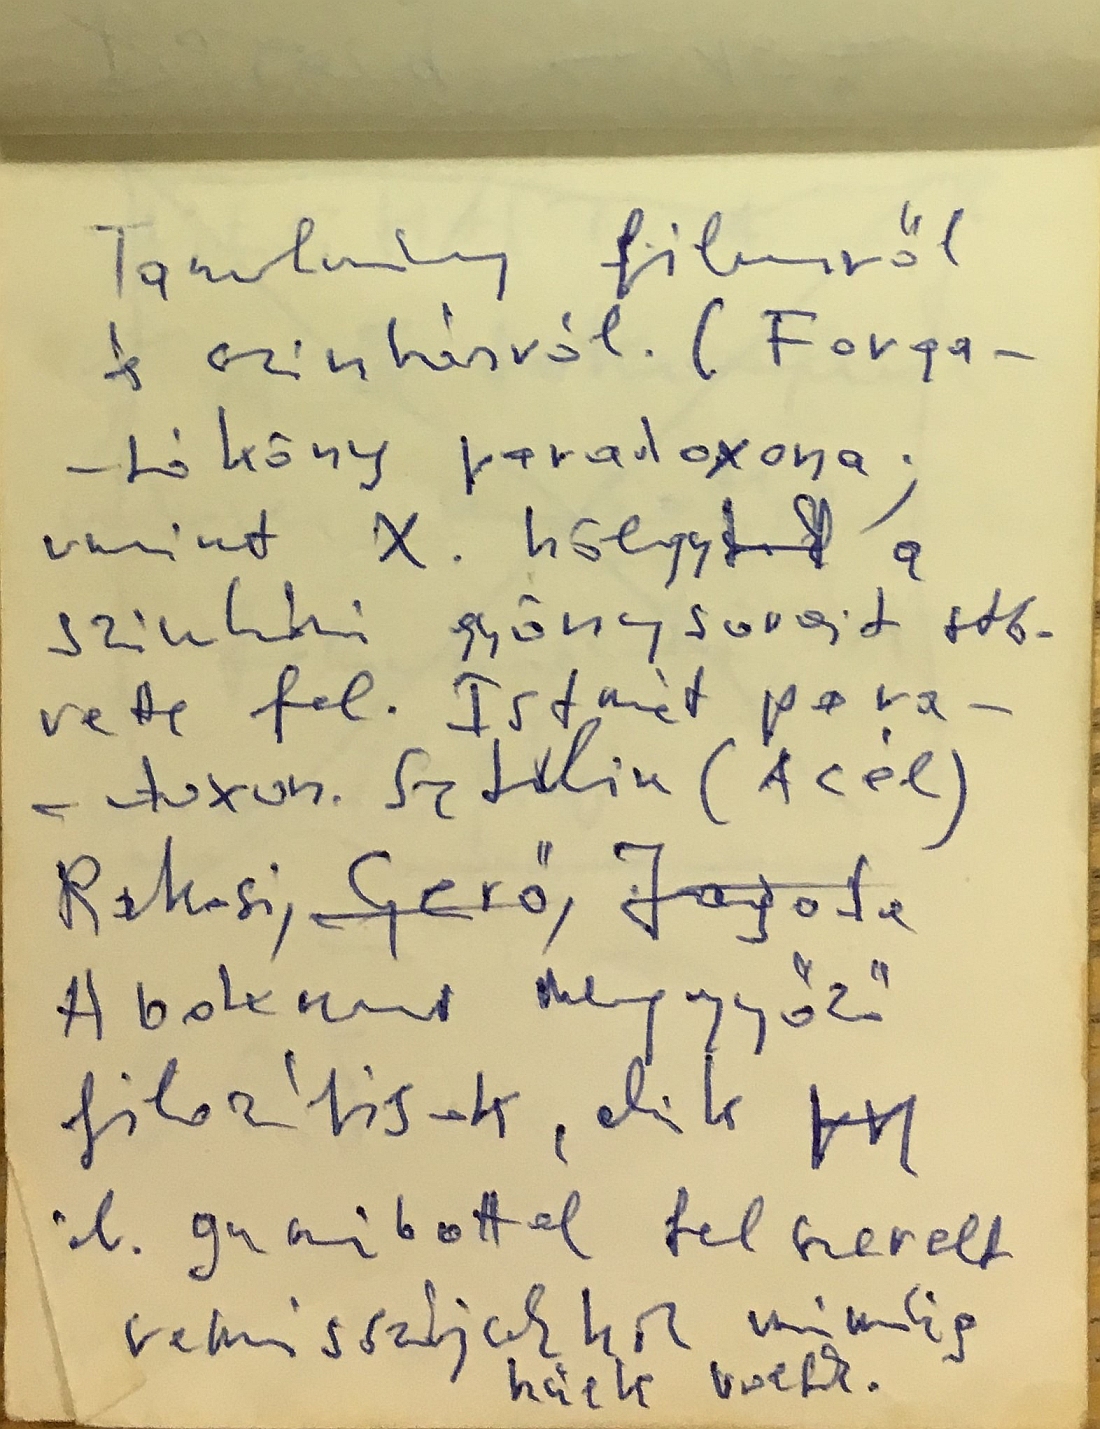 Tanulmány filmről
és színházról. (Forga-
-tóköny paradoxona;
mint X. hölgy a
színházi gyöngysorait stb.
vette fel. Ismét para-
-doxon. Sztálin (Acél)
Rákosi, Gerő,
A boksz meggyőző
filozófusok, akik
ill. gumibottal felszerelt
mindig
hűek voltak.